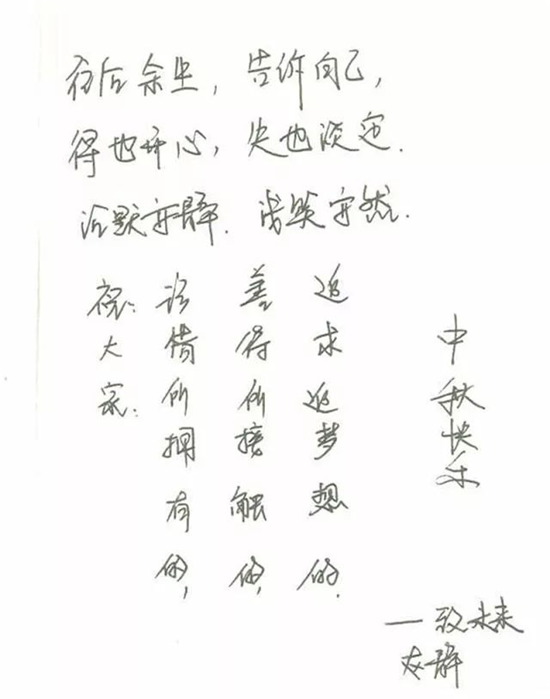 往后余生，告诉自己，
得也开心，失也淡定.
沉默安静.浅笑安然.
祝：大家：
惜所拥有的，
善待所接触的，
追求追梦想的.
中秋快乐
—致未来
静